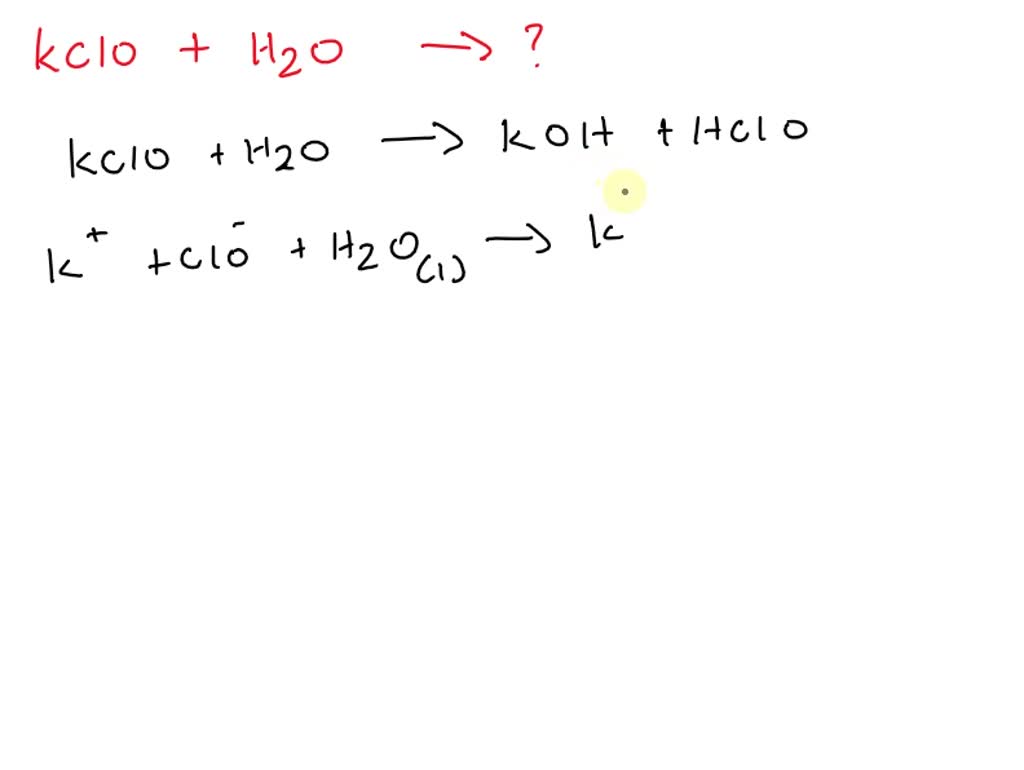 kClO + H2O → ?
kClO + H2O → kOH + HClO
k⁺ + ClO⁻ + H2O(l) → k